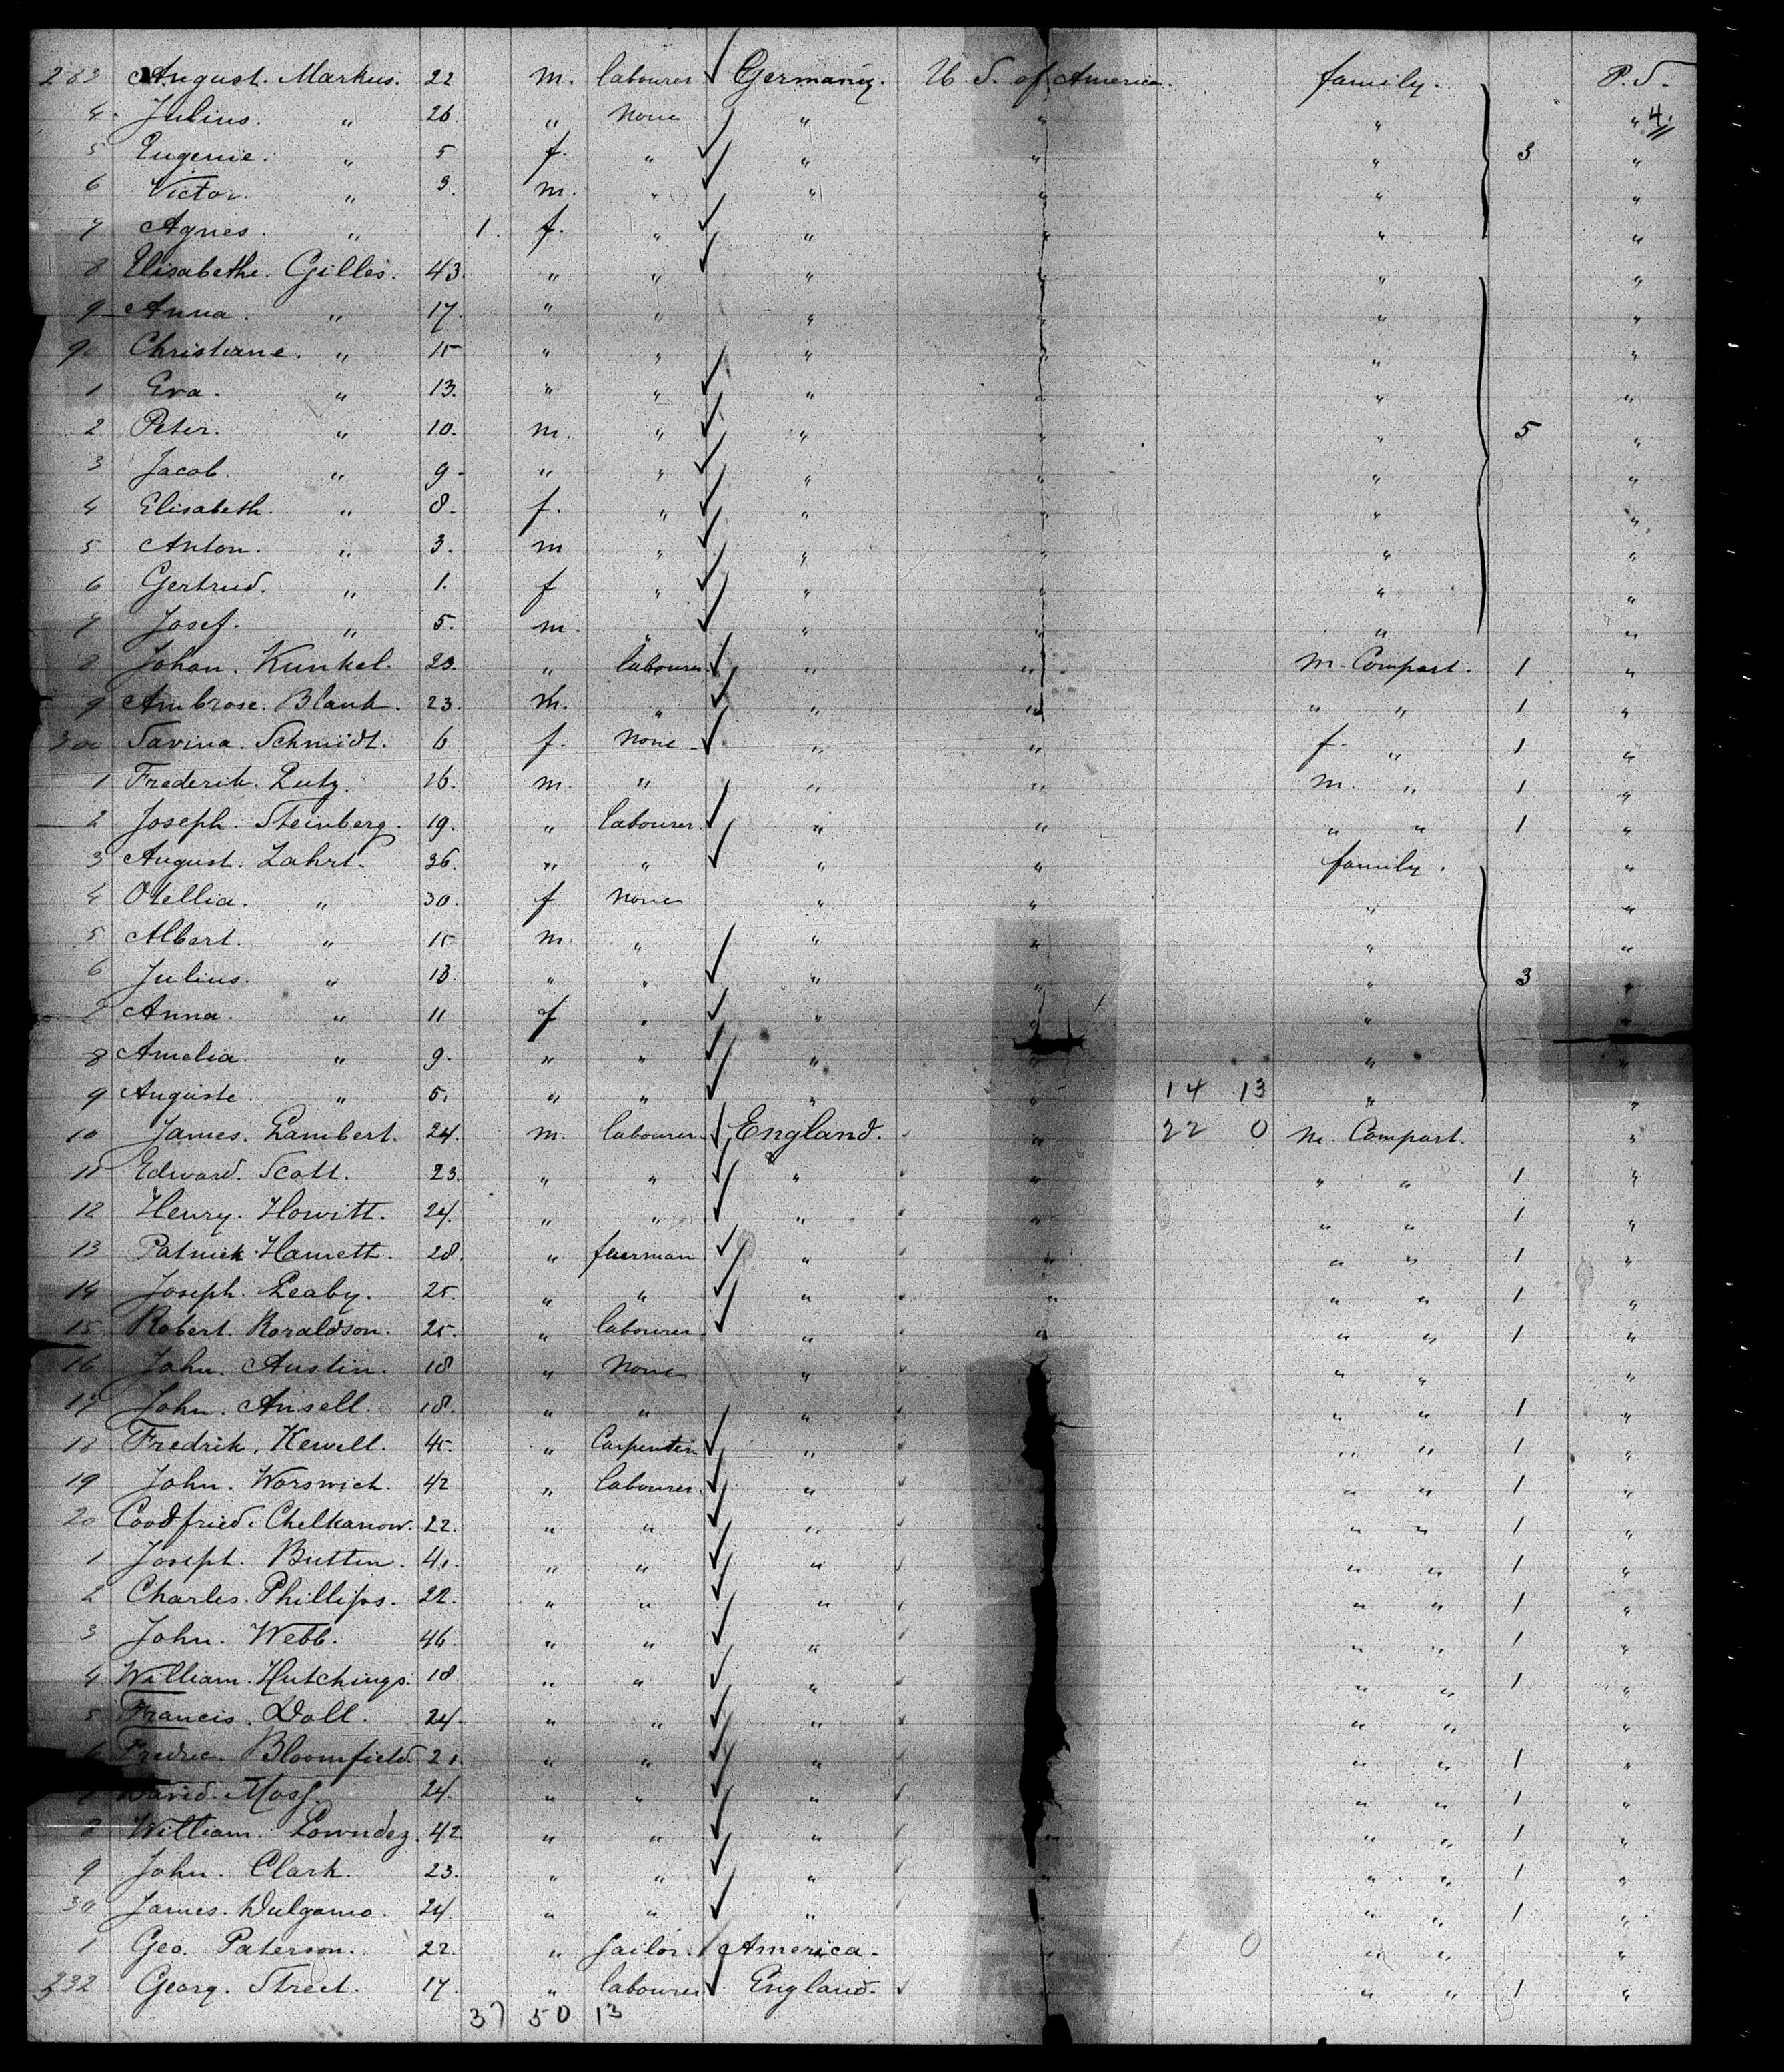 283 August. Markus. 22 m. labourer Germany. U. S. of America. family. P.S.
4. Julius. " 26. " none " " " " 4.
5 Eugenie. " 5 f. " " " " 3 "
6 Victor. " 3. m. " " " " "
7 Agnes. " 1. f. " " " " "
8 Elisabethe. Gilles. 43. " " " " " "
9 Anna. " 17. " " " " " "
90 Christiane. " 15 " " " " " "
1 Eva. " 13. " " " " " "
2 Peter. " 10. m. " " " " 5 "
3 Jacob. " 9. " " " " " "
4 Elisabeth. " 8. f. " " " " "
5 Anton. " 3. m " " " " "
6 Gertrud. " 1. f " " " " "
7 Josef. " 5. m. " " " " "
8 Johan. Kunkel. 20. " labourer " " m. Compart. 1 "
9 Ambrose. Blank. 23. m. " " " " " 1 "
300 Savina. Schmidt. 6 f. none " " f. " 1 "
1 Frederik. Lutz. 26. m. " " " m. " 1 "
2 Joseph. Steinberg. 19. " labourer. " " " " 1 "
3 August. Zahrt. 36. " " " " family. "
4 Otellia. " 30. f none " " " "
5 Albert. " 15 m. " " " " "
6 Julius. " 13. " " " " " 3 "
7 Anna. " 11 f " " " " "
8 Amelia. " 9. " " " " " "
9 Auguste. " 5. " " " " 14 13 " "
10 James. Lambert. 24. m. labourer England. " 22 0 m. Compart. "
11 Edward. Scott. 23. " " " " " " 1 "
12 Henry. Howitt. 24. " " " " " " 1 "
13 Patrick. Hamett. 28. " fuerman " " " " 1 "
14 Joseph. Leaby. 25. " " " " " " 1 "
15 Robert. Roraldson. 25. " labourer " " " " 1 "
16 John. Austin. 18 " none " " " "
17 John. Ansell. 18. " " " " " 1 "
18 Fredrik. Kewell. 45. " Carpenter " " " 1 "
19 John. Worswich. 42 " labourer " " " 1 "
20 Coodfried. Chelkanow. 22. " " " " " " 1 "
1 Joseph. Butten. 41. " " " " " 1 "
2 Charles. Phillips. 22. " " " " " 1 "
3 John. Webb. 46. " " " " " 1 "
4 William. Hutchings. 18 " " " " " 1 "
5 Francis. Doll. 24. " " " " " "
6 Fredric. Bloomfield. 21. " " " " " 1 "
David. Moss. 24. " " " " " 1 "
8 William. Lowndez. 42. " " " " " " 1 "
9 John. Clark. 23. " " " " " " 1 "
30 James. Dulgamo. 24. " " " " " " 1 "
1 Geo. Paterson. 22. " Sailor. America. " 1 0 " " "
332 Georg. Street. 17. " labourer England. " " " 1 "
37 50 13